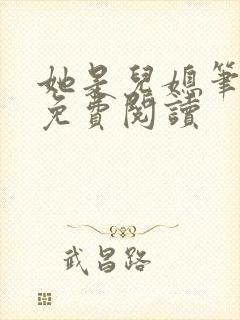 她是兒媳筆
免費閱讀
武昌路